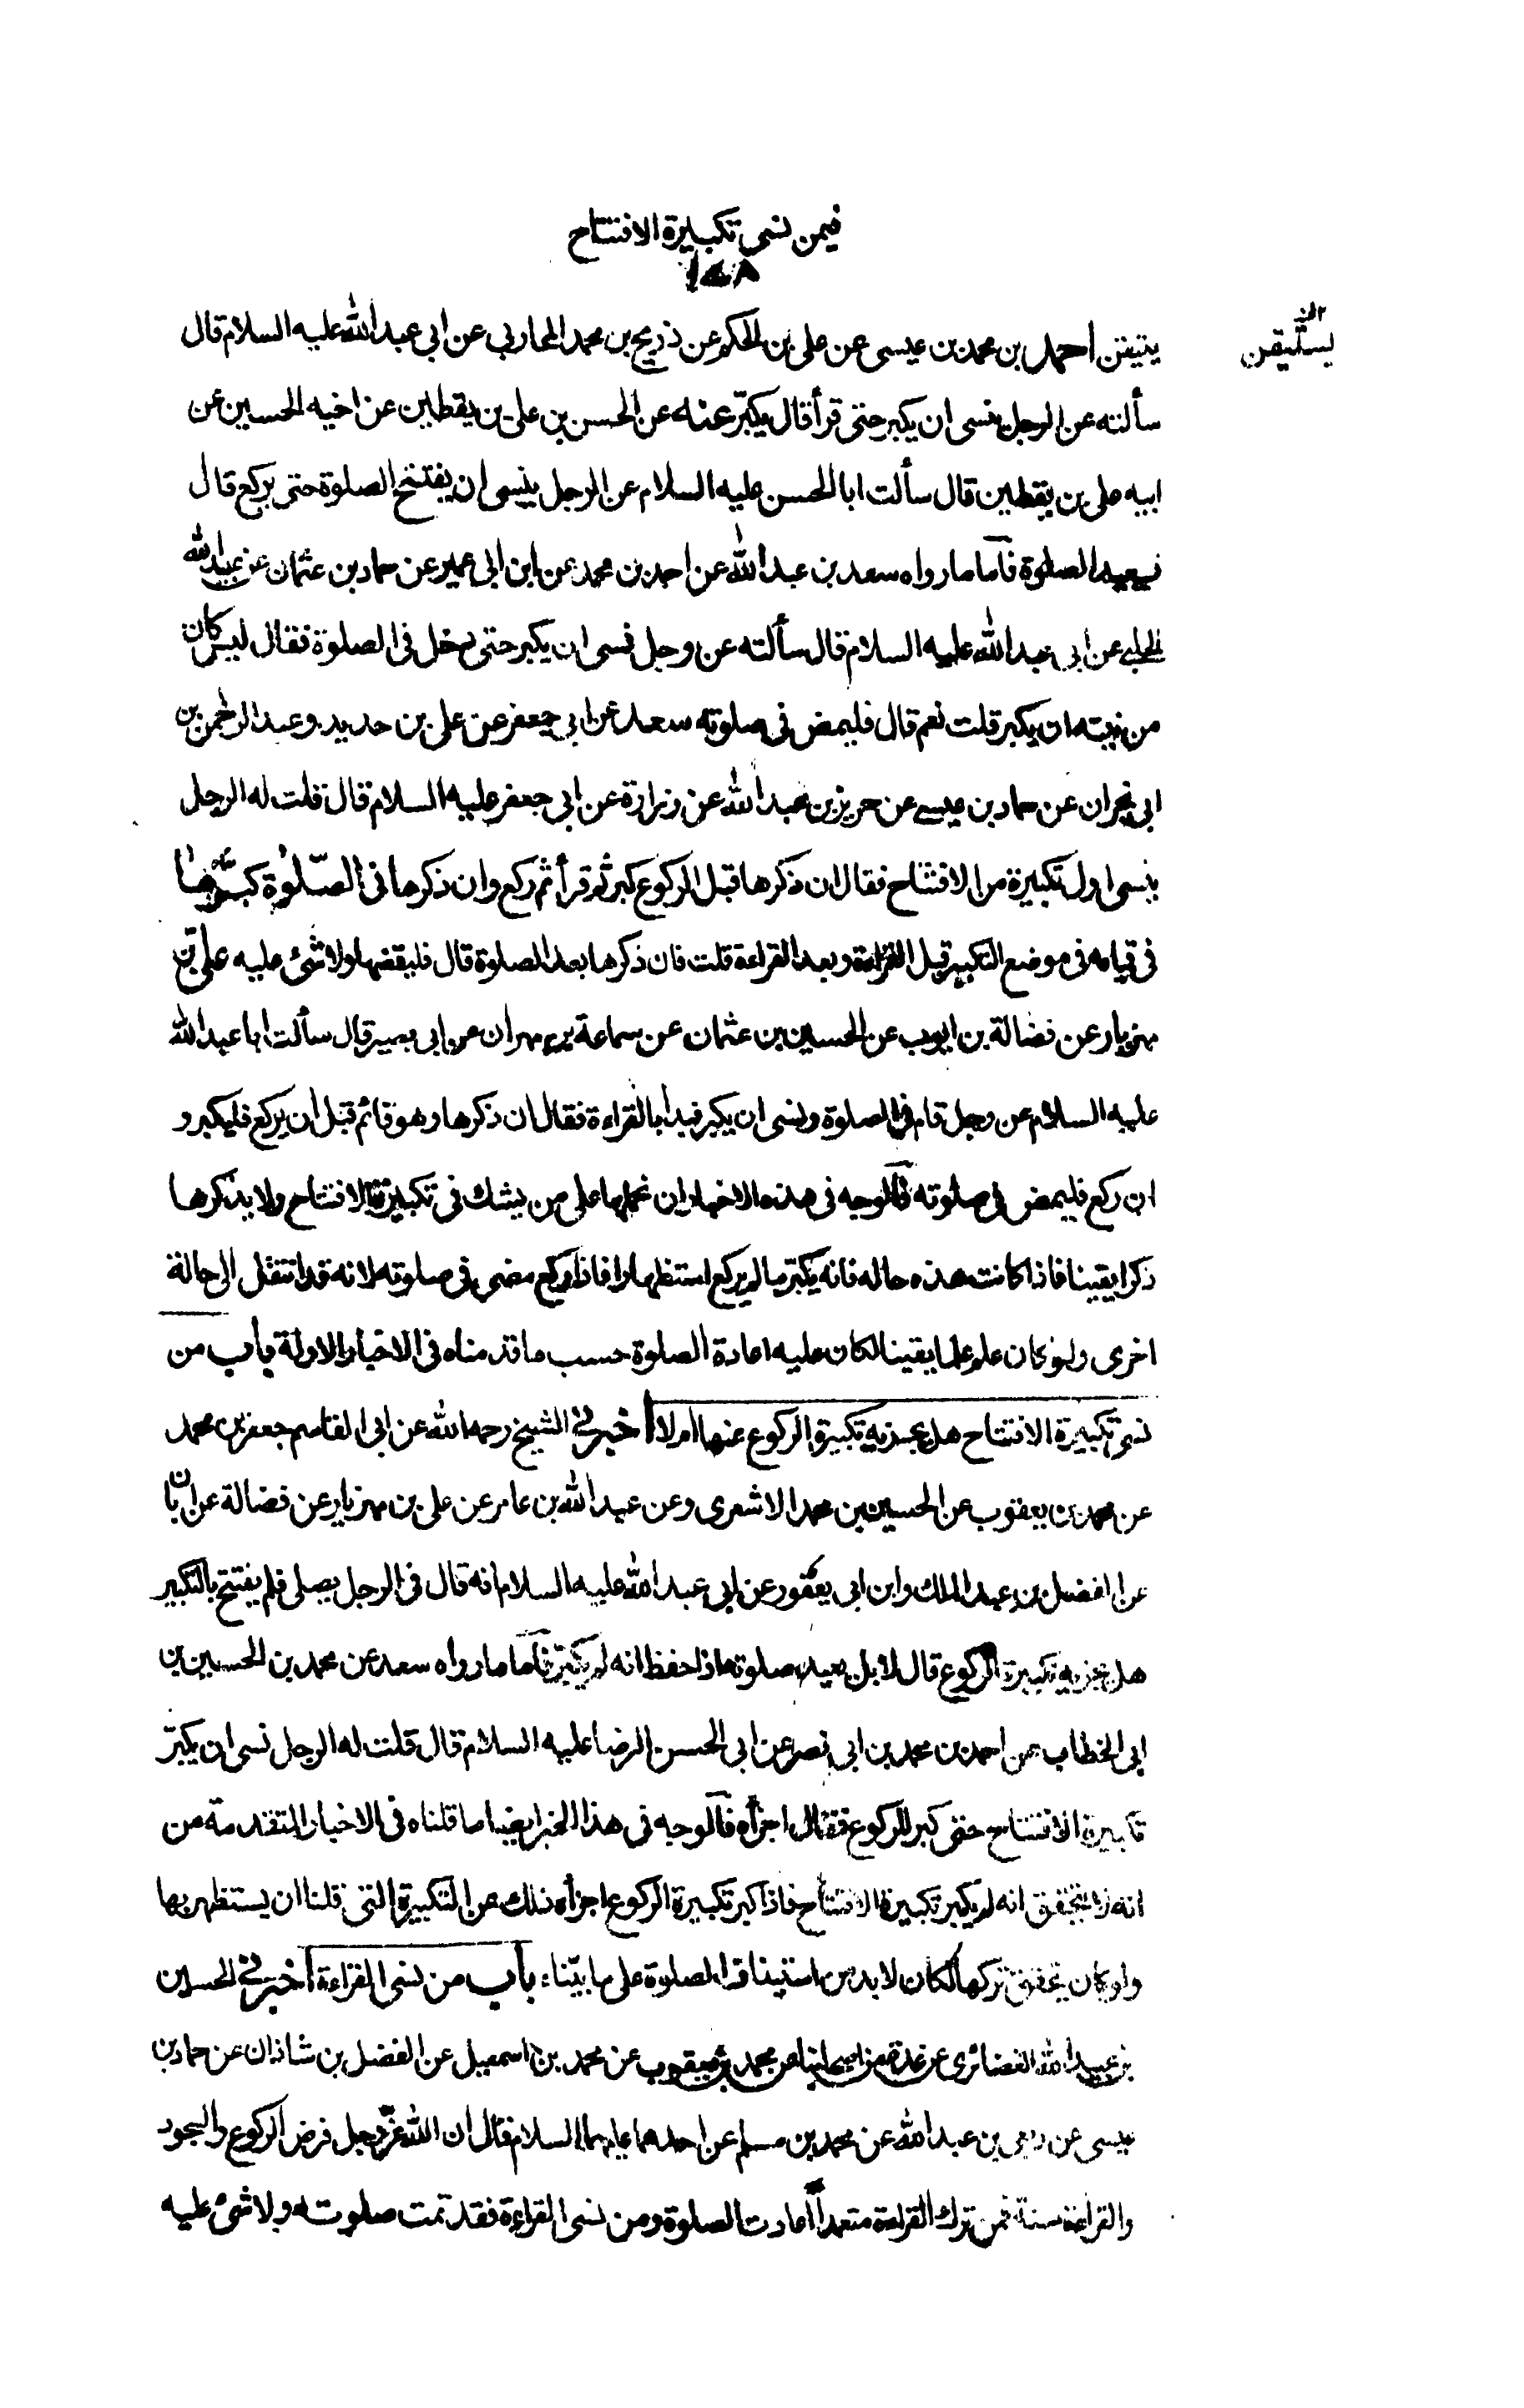 فيمن نسى تكبيرة الافتتاح
١٤٨
يستيقن
يتيقن احمد بن محمد بن عيسى عن على بن الحكم عن ذريح بن محمد المحاربى عن ابى عبد الله عليه السلام قال
سألته عن الرجل ينسى ان يكبر حتى قرأ قال يكبّر عنه عن الحسن بن على بن يقطين عن اخيه الحسين عن
ابيه على بن يقطين قال سألت ابا الحسن عليه السلام عن الرجل ينسى ان يفتتح الصلوة حتى يركع قال
يعيد الصلوة فآما ما رواه سعد بن عبد الله عن احمد بن محمد عن ابن ابى عمير عن حماد بن عثمان عن عبيد الله
الحلبى عن ابى عبد الله عليه السلام قال سألته عن رجل نسى ان يكبر حتى دخل فى الصلوة فقال اليس كان
من نيته ان يكبر قلت نعم قال فليمض فى صلوته سعد عن ابى جعفر عن على بن حديد وعبد الرحمن بن
ابى نجران عن حماد بن عيسى عن حريز بن عبد الله عن زرارة عن ابى جعفر عليه السلام قال قلت له الرجل
ينسى اول تكبيرة من الافتتاح فقال ان ذكرها قبل الركوع كبر ثم قرأ ثم ركع وان ذكرها فى الصّلوة كبّرها
فى قيامه فى موضع التكبير قبل القراءة وبعد القراءة قلت فان ذكرها بعد الصلوة قال فليقضها ولا شئ عليه على بن
مهزيار عن فضالة بن ايوب عن الحسين بن عثمان عن سماعة بن مهران عن ابى بصير قال سألت ابا عبد الله
عليه السلام عن رجل قام فى الصلوة ونسى ان يكبر فبدأ بالقراءة فقال ان ذكرها وهو قائم قبل ان يركع فليكبر و
ان ركع فليمض فى صلوته فآلوجه فى هذه الاخبار ان نحملها على من يشك فى تكبيرة الافتتاح ولا يذكرها
ذكرا يقينا فاذا كانت هذه حاله فانه يكبّر ما لم يركع استظهارا فاذا ركع مضى فى صلوته لانه قد انتقل الى حالة
اخرى ولو كان علم علما يقينا لكان عليه اعادة الصلوة حسب ما قدمناه فى الاخبار الاولة باب من
نسى تكبيرة الافتتاح هل يجزيه تكبيرة الركوع عنها ام لا اخبرنى الشيخ رحمه الله عن ابى القاسم جعفر بن محمد
عن محمد بن يعقوب عن الحسين بن محمد الاشعرى وعن عبد الله بن عامر عن على بن مهزيار عن فضالة عن ابان
عن الفضل بن عبد الملك وابن ابى يعفور عن ابى عبد الله عليه السلام انه قال فى الرجل يصلى فلم يفتتح بالتكبير
هل يجزيه تكبيرة الركوع قال لا بل يعيد صلوته اذا حفظ انه لم يكبّر فآما ما رواه سعد عن محمد بن الحسين بن
ابى الخطاب عن احمد بن محمد بن ابى نصر عن ابى الحسن الرضا عليه السلام قال قلت له الرجل نسى ان يكبّر
تكبيرة الافتتاح حتى كبر للركوع فقال اجزأه فآلوجه فى هذا الخبر ايضا ما قلناه فى الاخبار المتقدمة من
انه لم يتحقق انه لم يكبر تكبيرة الافتتاح فاذا كبر تكبيرة الركوع اجزأه ذلك عن التكبيرة التى قلنا ان يستظهر بها
ولو كان تحقق تركها لكان لا بد من استيناف الصلوة على ما بيّناه باب من نسى القراءة اخبرنى الحسين
بن عبيد الله الغضائرى عن عدة من اصحابنا عن محمد بن يعقوب عن محمد بن اسمعيل عن الفضل بن شاذان عن حماد بن
عيسى عن ربعى بن عبد الله عن محمد بن مسلم عن احدهما عليهما السلام قال ان الله عزّ وجل فرض الركوع والسجود
والقراءة سنة فمن ترك القراءة متعمدا اعاد الصلوة ومن نسى القراءة فقد تمت صلوته ولا شئ عليه